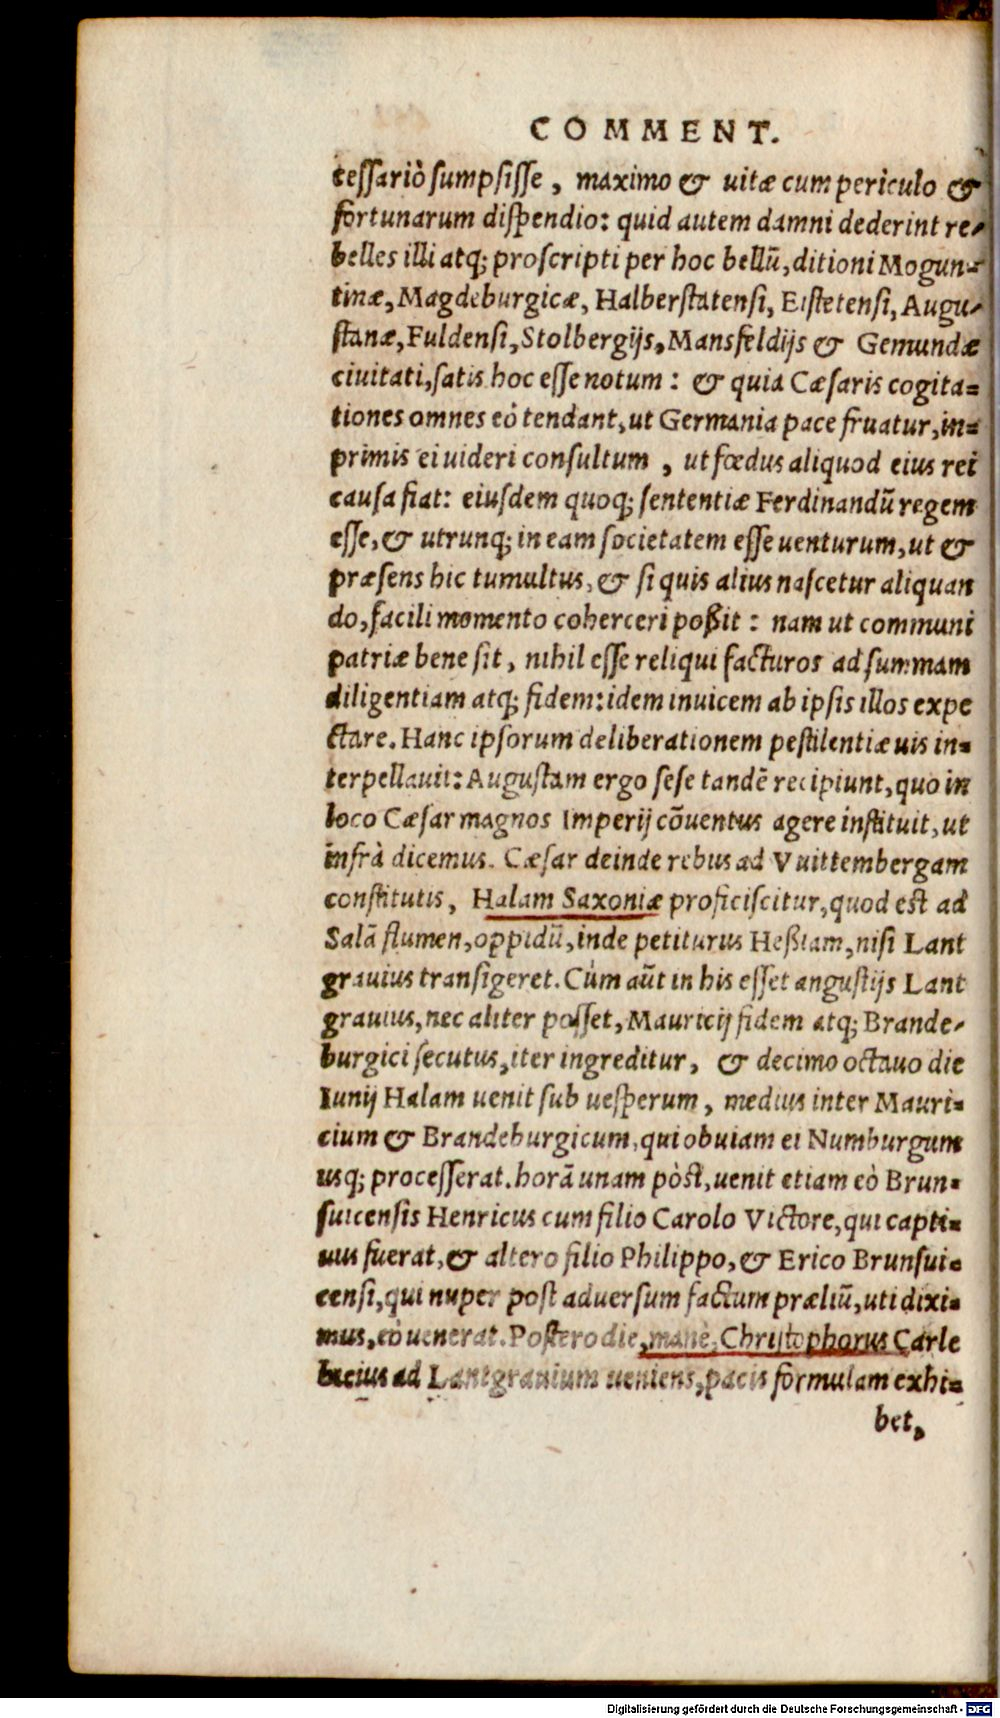 COMMENT.
tessariò sumpsisse, maximo & uitæ cum periculo &
fortunarum dispendio: quid autem damni dederint re-
belles illi atq; proscripti per hoc bellũ, ditioni Mogun-
tinæ, Magdeburgicæ, Halberstatensi, Eistetensi, Augu-
stanæ, Fuldensi, Stolbergijs, Mansfeldijs & Gemundæ
ciuitati, satis hoc esse notum: & quia Cæsaris cogita-
tiones omnes eò tendant, ut Germania pace fruatur, in-
primis ei uideri consultum, ut fœdus aliquod eius rei
causa fiat: eiusdem quoq; sententiæ Ferdinandũ regem
esse, & utrunq; in eam societatem esse uenturum, ut &
præsens hic tumultus, & si quis alius nascetur aliquan
do, facili momento coherceri poßit: nam ut communi
patriæ bene sit, nihil esse reliqui facturos ad summam
diligentiam atq; fidem: idem inuicem ab ipsis illos expe
ctare. Hanc ipsorum deliberationem pestilentiæ uis in-
terpellauit: Augustam ergo sese tandẽ recipiunt, quo in
loco Cæsar magnos Imperij cõuentus agere instituit, ut
infrà dicemus. Cæsar deinde rebus ad Vuittembergam
constitutis, Halam Saxoniæ proficiscitur, quod est ad
Salã flumen, oppidũ, inde petiturus Heßiam, nisi Lant
grauius transigeret. Cùm aũt in his esset angustijs Lant
grauius, nec aliter posset, Mauricij fidem atq; Brande-
burgici secutus, iter ingreditur, & decimo octauo die
Iunij Halam uenit sub uesperum, medius inter Mauri-
cium & Brandeburgicum, qui obuiam ei Numburgum
usq; processerat. horã unam pòst, uenit etiam eò Brun-
suicensis Henricus cum filio Carolo Victore, qui capti-
uus fuerat, & altero filio Philippo, & Erico Brunsui-
censi, qui nuper post aduersum factum præliũ, uti dixi-
mus, eò uenerat. Postero die, manè, Christophorus Carle
bicius ad Lantgrauium ueniens, pacis formulam exhi-
bet,
Digitalisierung gefördert durch die Deutsche Forschungsgemeinschaft - DFG